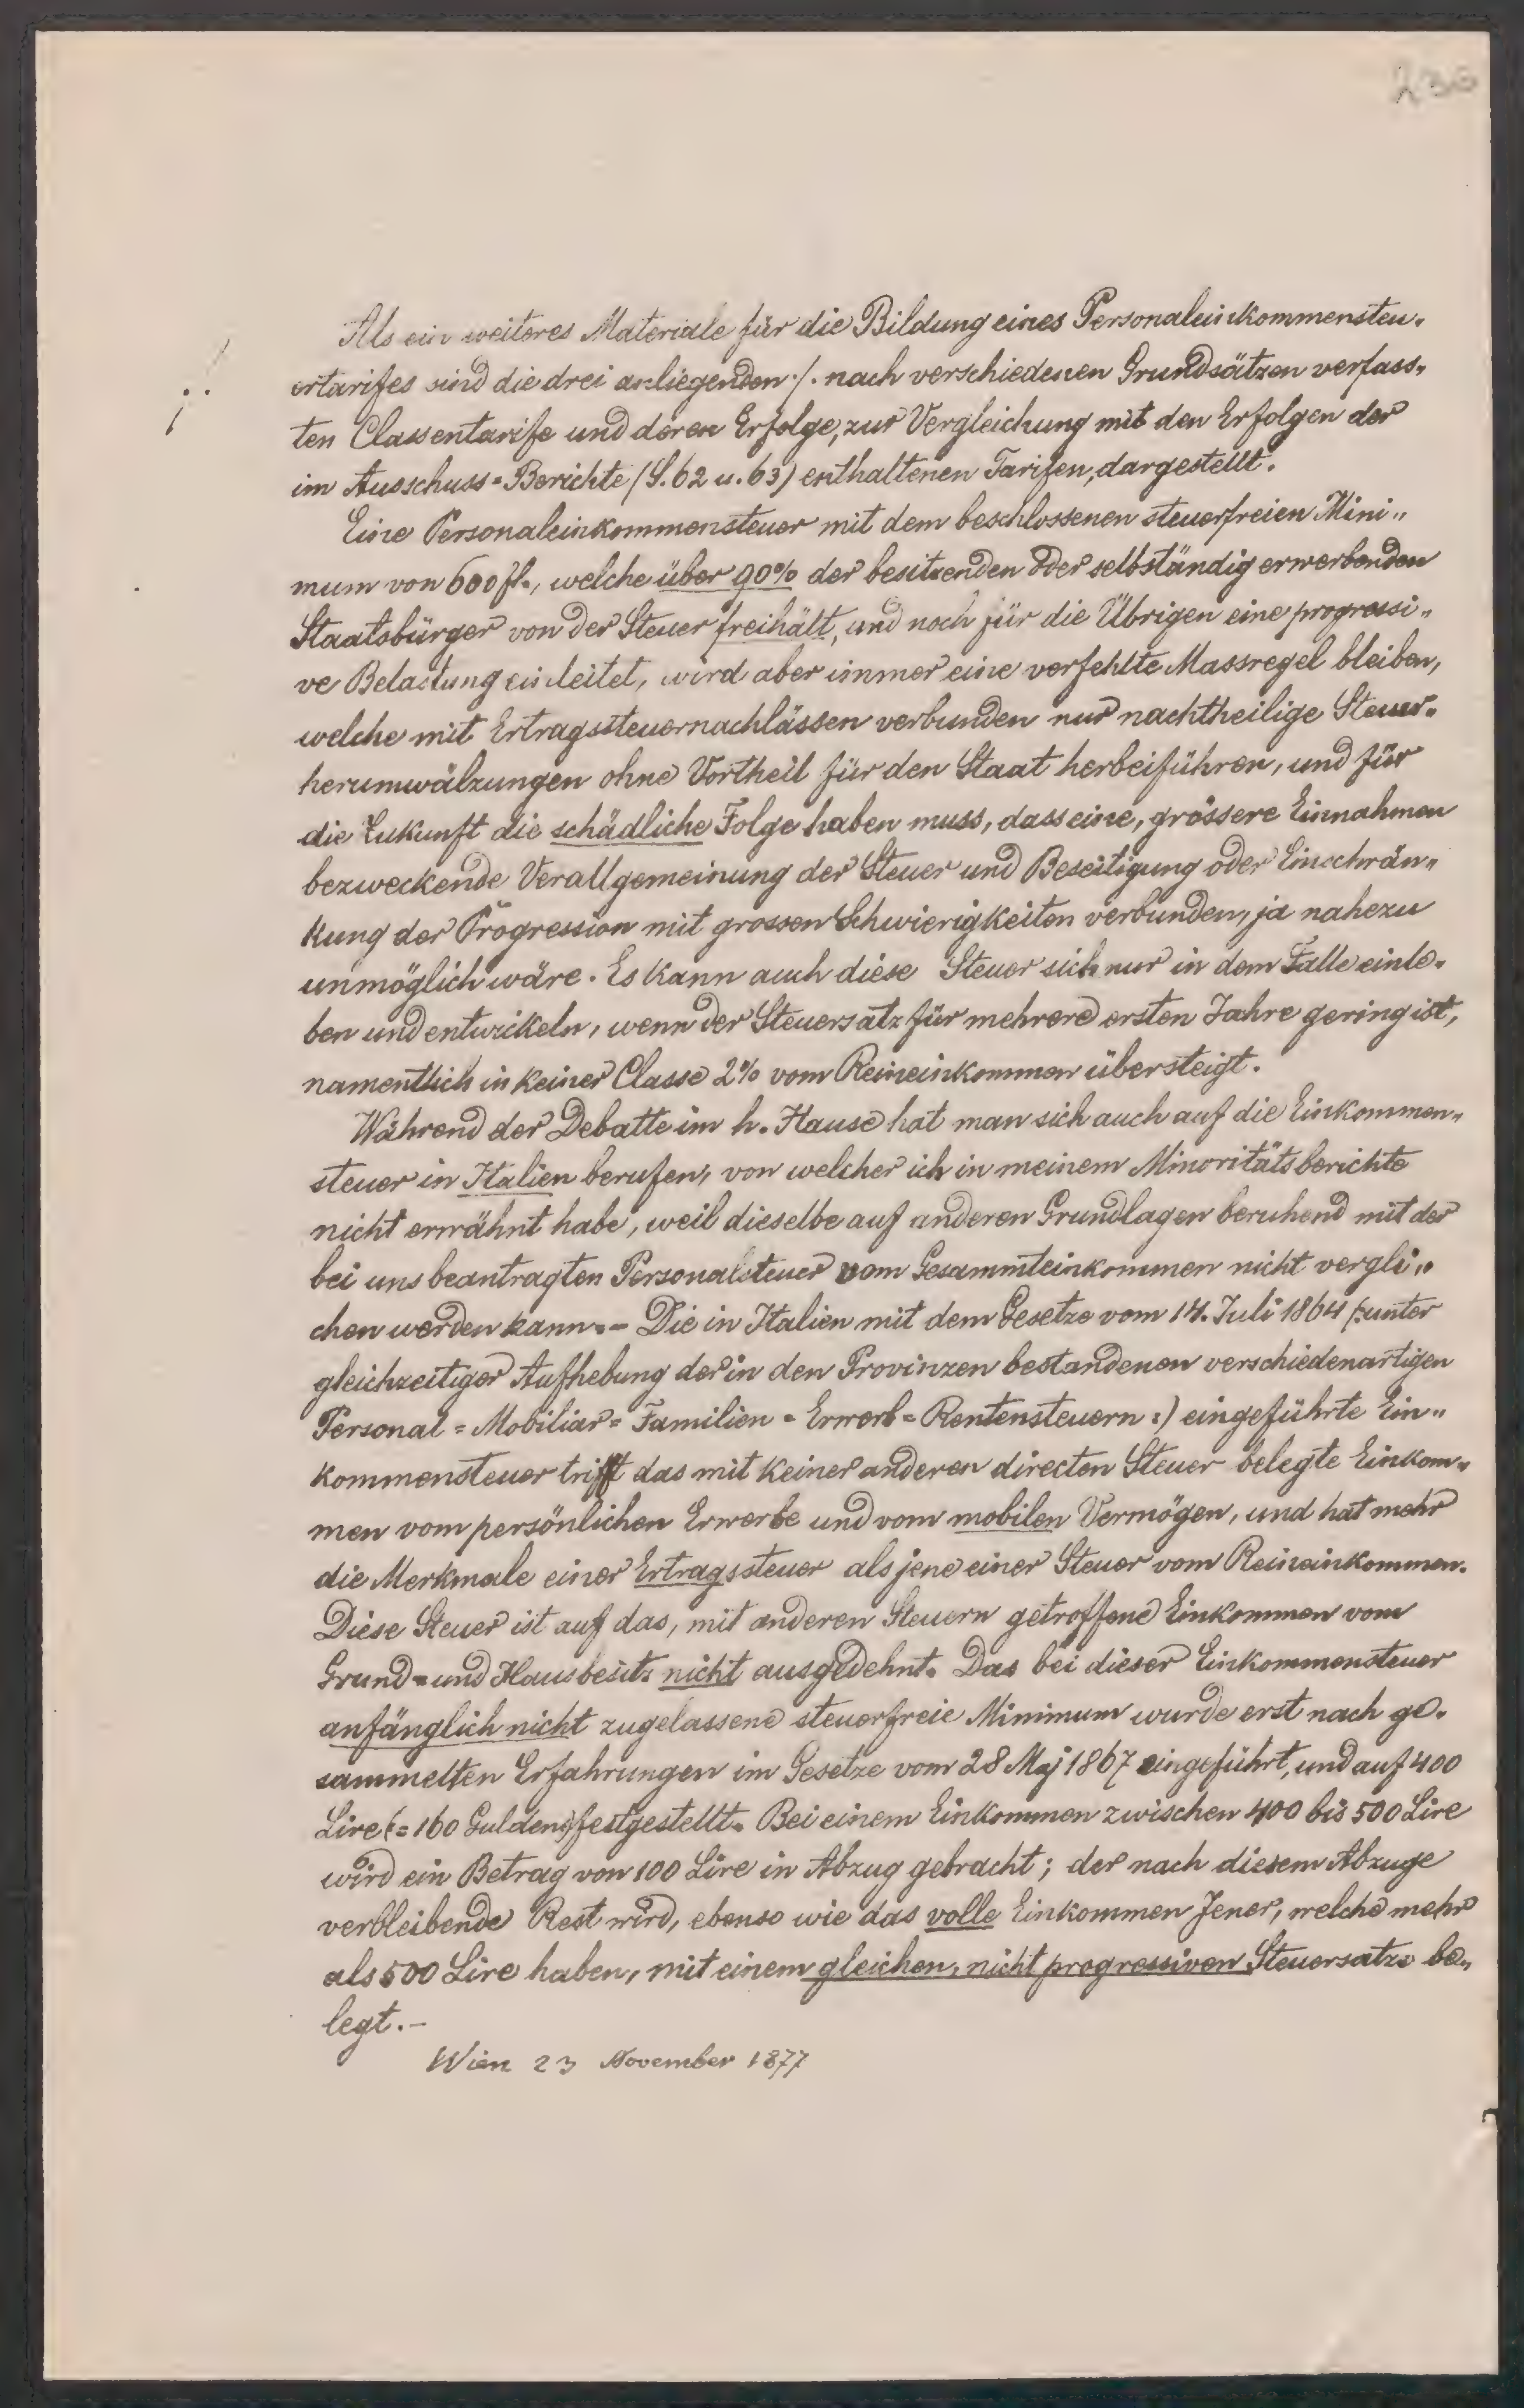 236
Als ein weiteres Materiale für die Bildung eines Personaleinkommensteu-
ertarifes sind die drei anliegenden ./. nach verschiedenen Grundsätzen verfass-
ten Classentarife und deren Erfolge, zur Vergleichung mit den Erfolgen der
im Ausschuss=Berichte (S. 62 u. 63) enthaltenen Tarifen, dargestellt.
Eine Personaleinkommensteuer mit dem beschlossenen steuerfreien Mini-
mum von 600 fl., welche über 90% der besitzenden oder selbständig erwerbenden
Staatsbürger von der Steuer freihält, und noch für die Übrigen eine progressi-
ve Belastung einleitet, wird aber immer eine verfehlte Massregel bleiben,
welche mit Ertragssteuernachlässen verbunden nur nachtheilige Steuer-
herumwälzungen ohne Vortheil für den Staat herbeiführen, und für
die Zukunft die schädliche Folge haben muss, dass eine, grössere Einnahmen
bezweckende Verallgemeinung der Steuer und Beseitigung oder Einschrän-
kung der Progression mit grossen Schwierigkeiten verbunden, ja nahezu
unmöglich wäre. Es kann auch diese Steuer sich nur in dem Falle einle-
ben und entwickeln, wenn der Steuersatz für mehrere ersten Jahre gering ist,
namentlich in keiner Classe 2% vom Reineinkommen übersteigt.
Während der Debatte im h. Hause hat man sich auch auf die Einkommen-
steuer in Italien berufen, von welcher ich in meinem Minoritätsberichte
nicht erwähnt habe, weil dieselbe auf anderen Grundlagen beruhend mit der
bei uns beantragten Personalsteuer vom Gesammteinkommen nicht vergli-
chen werden kann.- Die in Italien mit dem Gesetze vom 14. Juli 1864 (:unter
gleichzeitiger Aufhebung der in den Provinzen bestandenen verschiedenartigen
Personal = Mobiliar = Familien = Erwerb = Rentensteuern :) eingeführte Ein-
kommensteuer trifft das mit keiner anderen directen Steuer belegte Einkom-
men vom persönlichen Erwerbe und vom mobilen Vermögen, und hat mehr
die Merkmale einer Ertragssteuer als jene einer Steuer vom Reineinkommen.
Diese Steuer ist auf das, mit anderen Steuern getroffene Einkommen vom
Grund= und Hausbesitz nicht ausgedehnt. Das bei dieser Einkommensteuer
anfänglich nicht zugelassene steuerfreie Minimum wurde erst nach ge-
sammelten Erfahrungen im Gesetze vom 28 Maj 1867 eingeführt, und auf 400
Lire (= 160 Gulden) festgestellt. Bei einem Einkommen zwischen 400 bis 500 Lire
wird ein Betrag von 100 Lire in Abzug gebracht; der nach diesem Abzuge
verbleibende Rest wird, ebenso wie das volle Einkommen Jener, welche mehr
als 500 Lire haben, mit einem gleichen, nicht progressiven Steuersatze be-
legt.-
Wien 23 November 1877